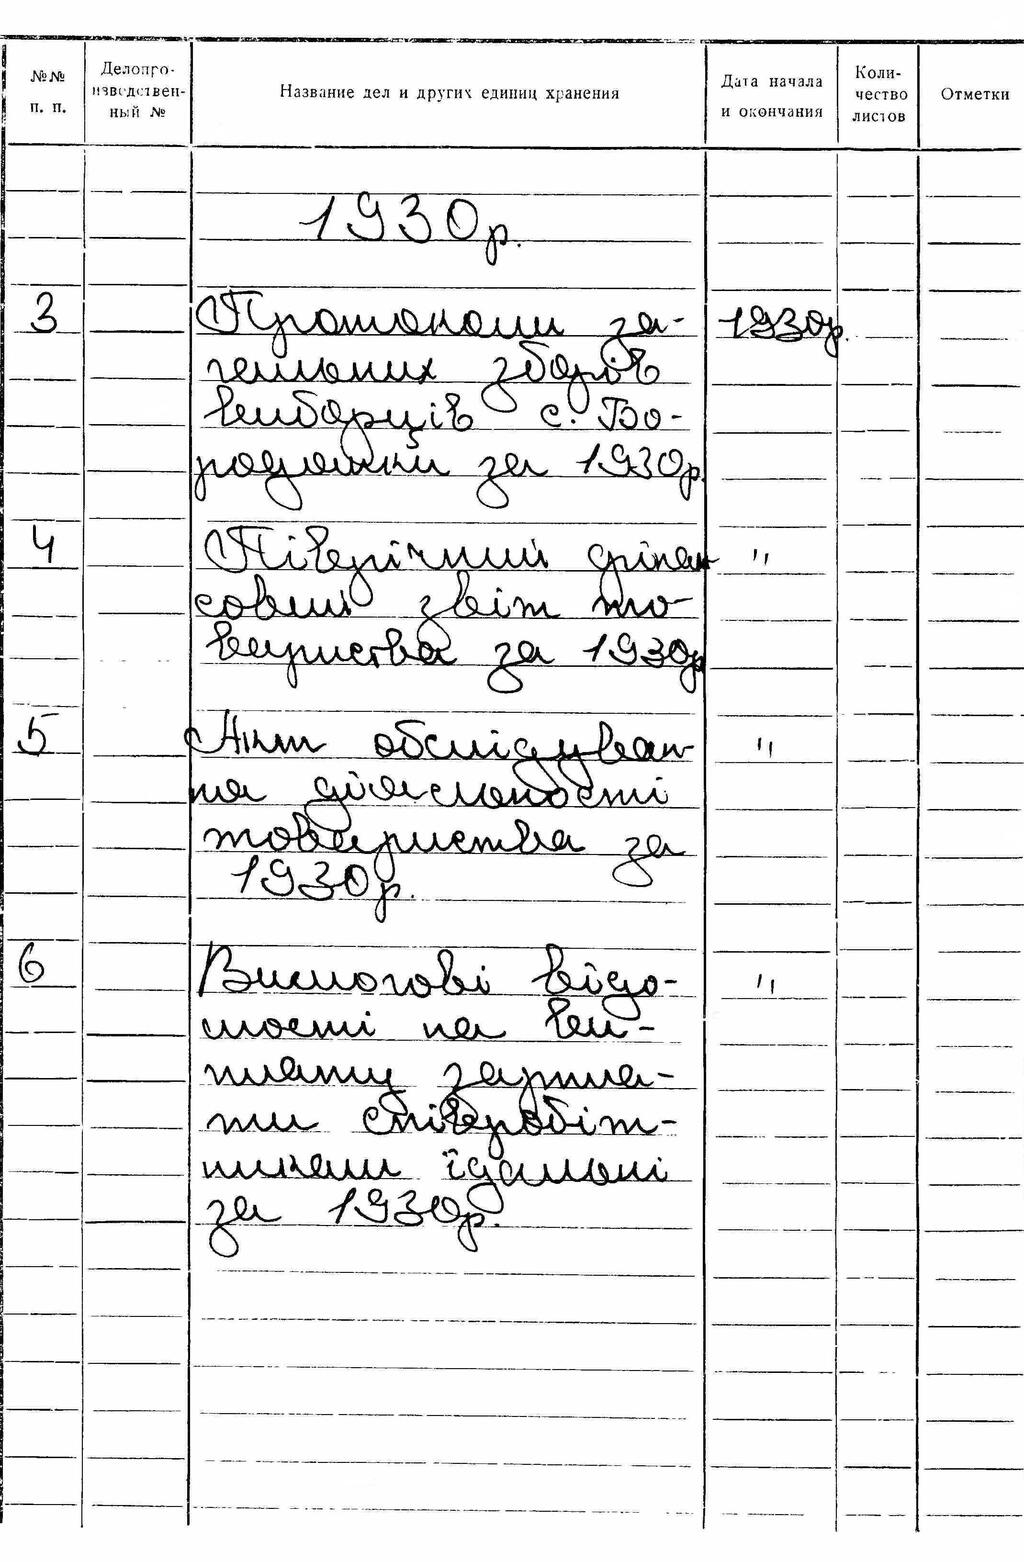 №№ п. п.
Делопро-
изводствен-
ный №
Название дел и других единиц хранения
Дата начала
и окончания
Коли-
чество
листов
Отметки
1930р.
3 Протоколи за- 1930р.
гельних зборів
виборців с. Бо-
родянки за 1930р.
4 Піврічний фінан "
совий звіт то-
вариства за 1930р
5 Акт обслідуван- "
ня діяльності
товариства за
1930р.
6 Вимогові відо- "
мості на ви-
плату зарпла-
ти співробіт-
никам їдальні
за 1930р.